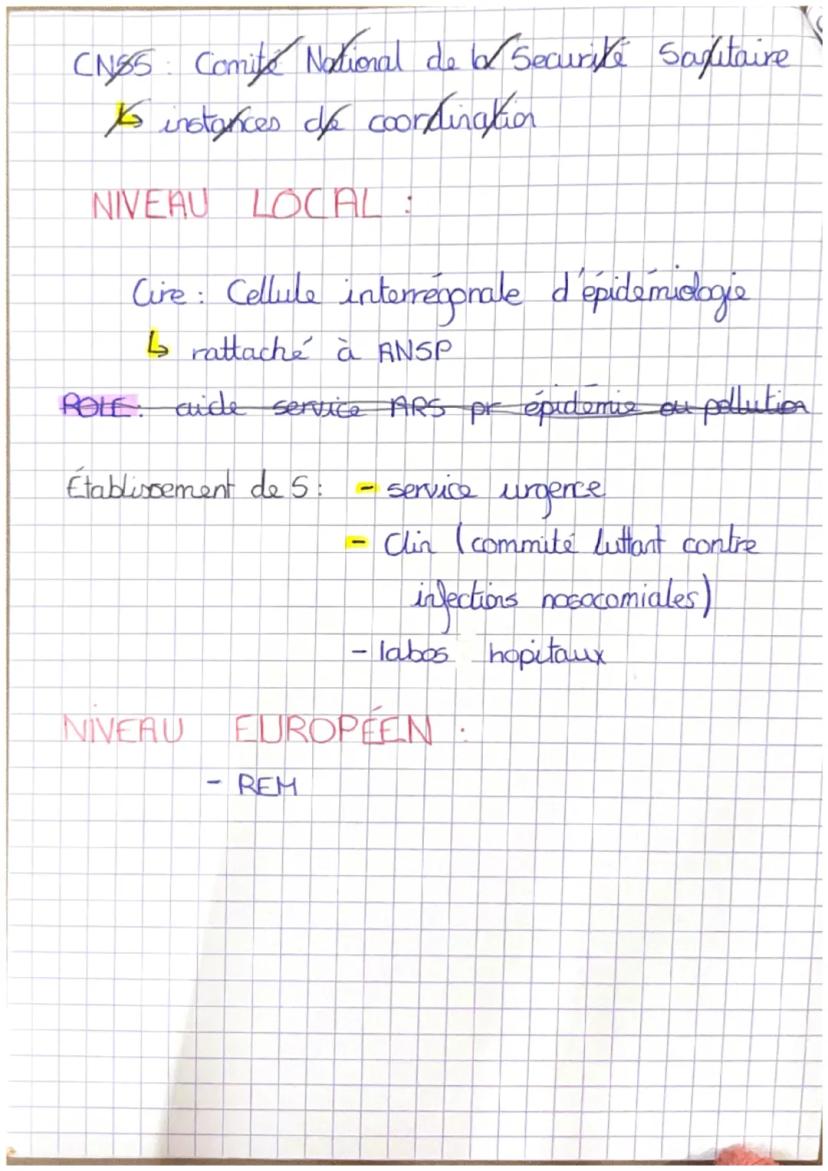 CNSS : Comité National de la Securité Sanitaire
↳ instances de coordination
NIVEAU LOCAL :
Cire : Cellule interrégonale d'épidémiologie
↳ rattaché à ANSP
ROLE : aide service ARS pr épidémie ou pollution
Établissement de S : - service urgence
- Clin (commité luttant contre
infections nosocomiales)
- labos hopitaux
NIVEAU EUROPÉEN :
- REM